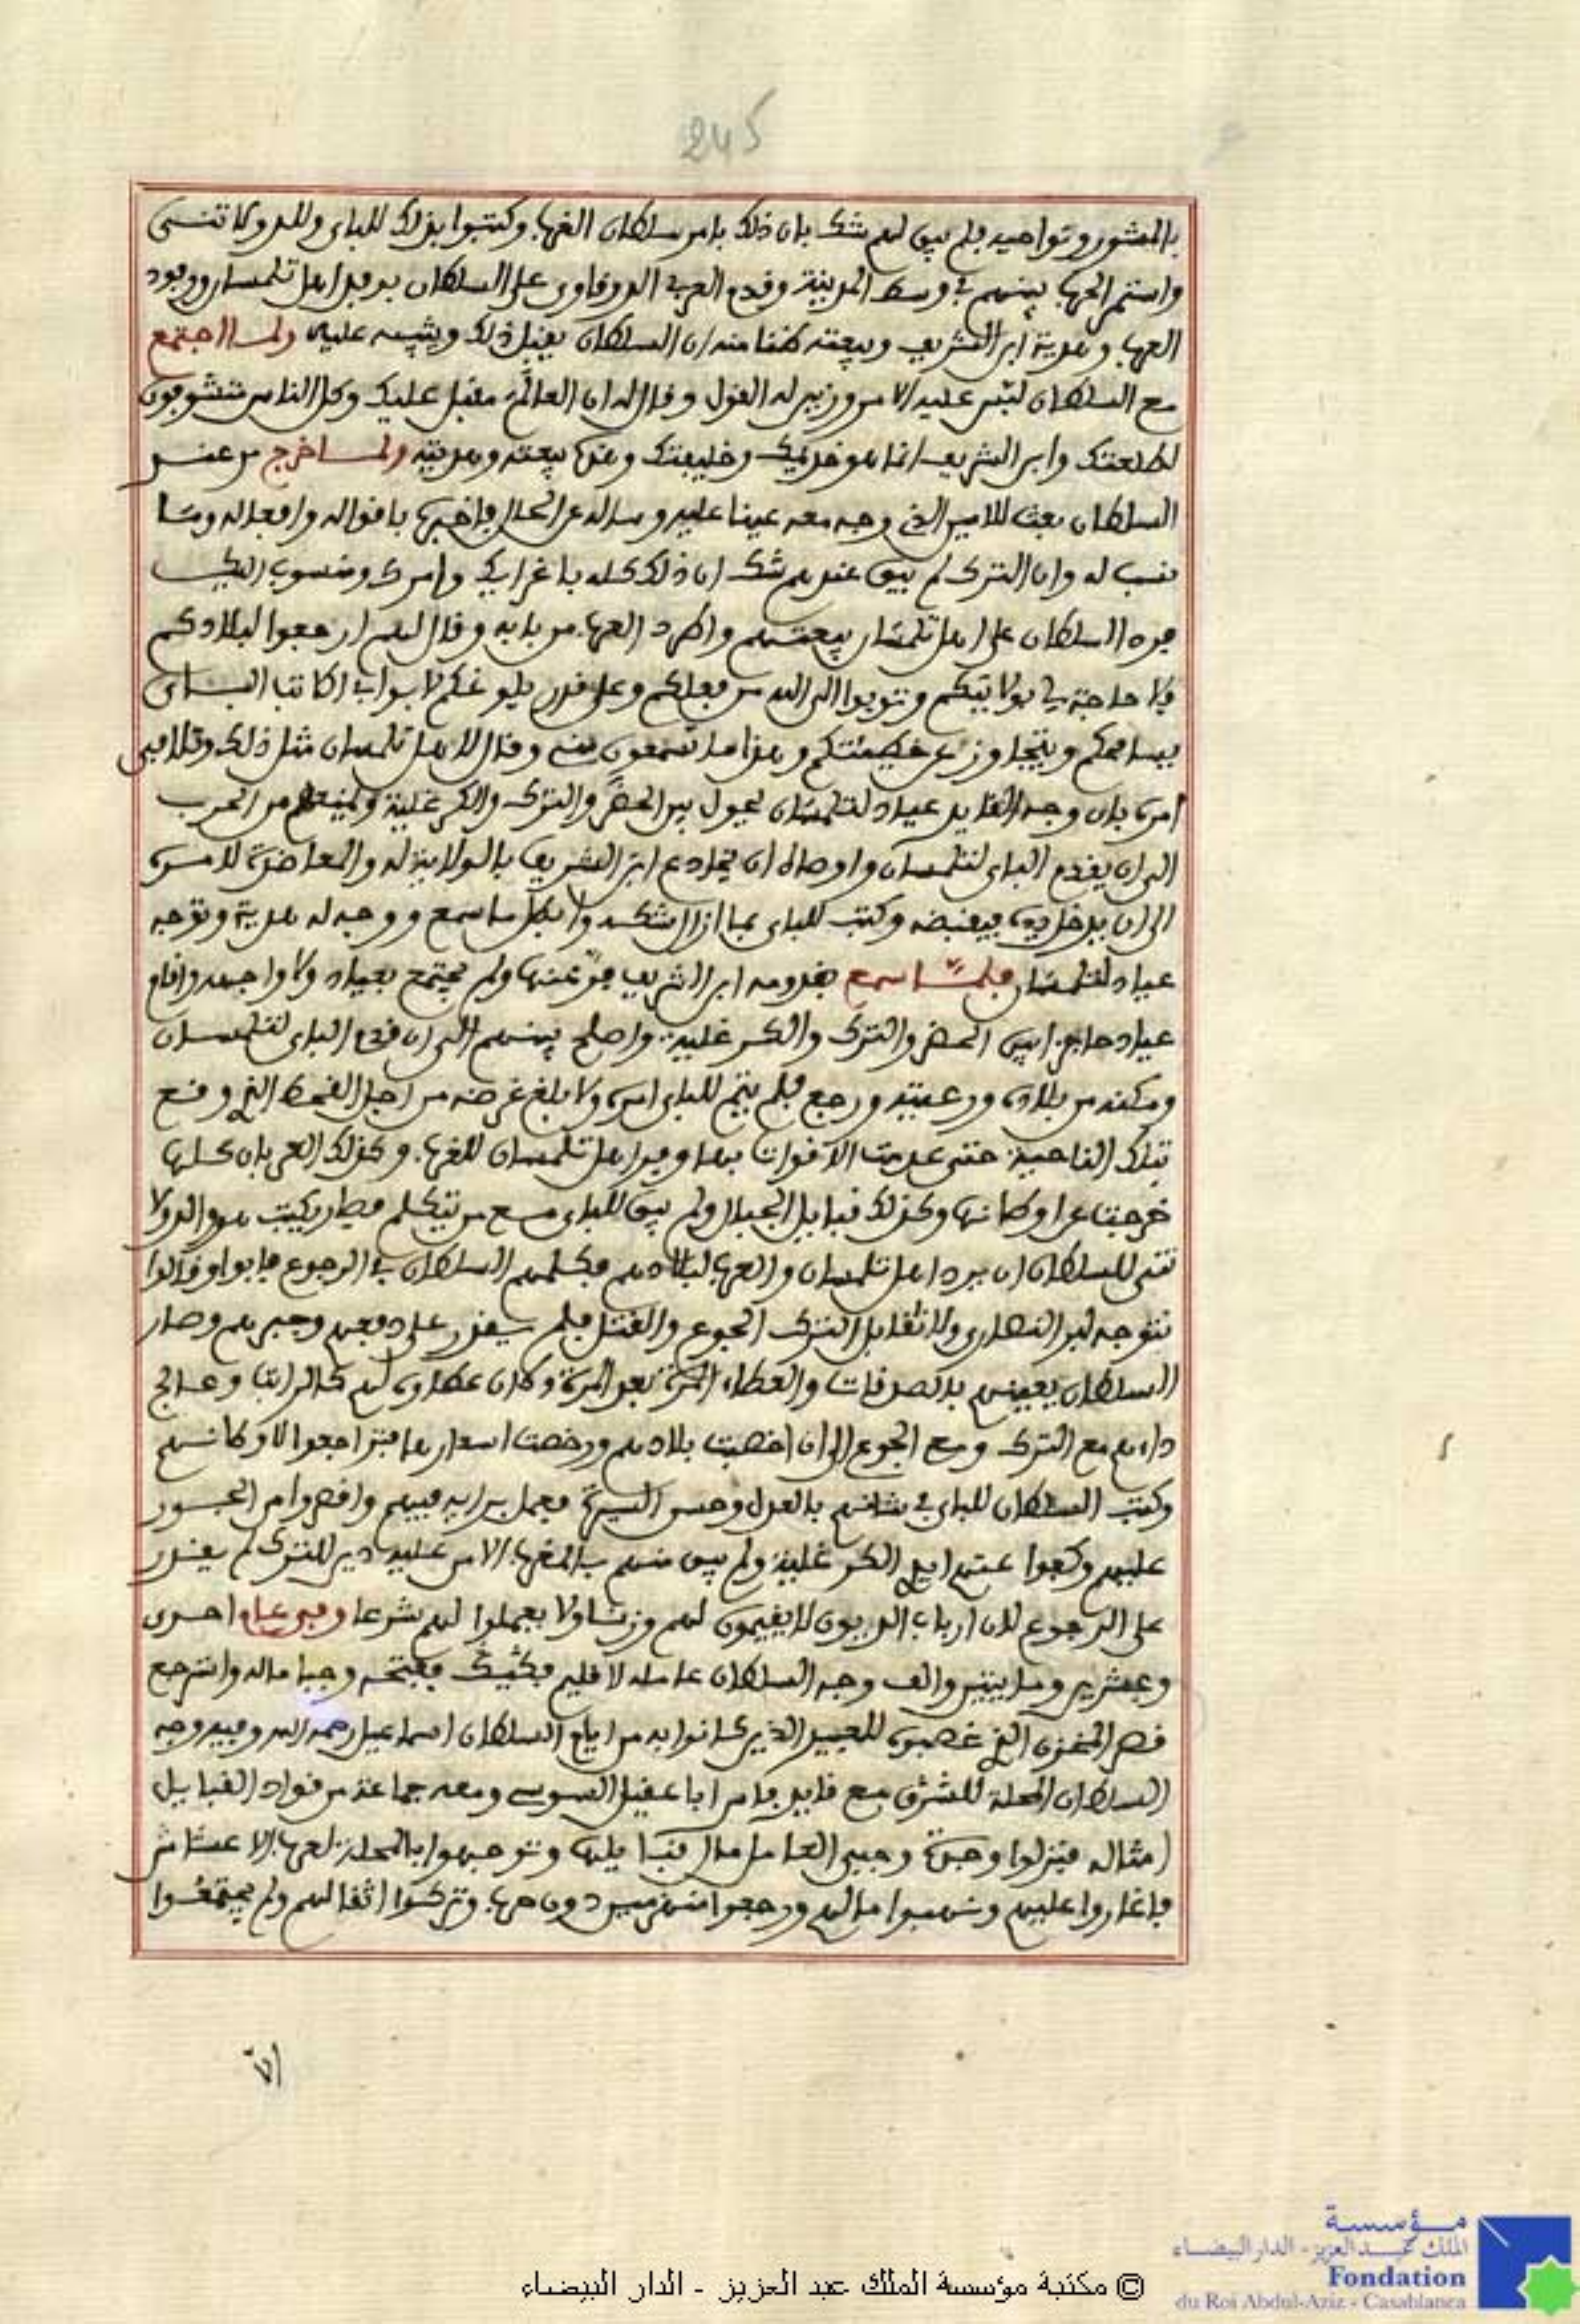 245
بالمشور ونواحيه فلم يبق لهم شك بان ذلك بامر سلطان الغرب وكتبوا بذلك للباي وللدولاتسى
واستمر الحرب بينهم في وسط المدينة وقدم العربي الدرقاوي على السلطان بوفد اهل تلمسان ووفود
العرب وهدية ابن الشريف وبيعته ظنا منه ان السلطان يقبل ذلك ويثيبه عليه ولما اجتمع
مع السلطان لبس عليه الامر وزين له القول وقال له ان العالم مقبل عليك وكل الناس متشوفون
لطلعتك وابن الشريف انما هو خديمك وخليفتك وهذه بيعته وهديته ولما خرج من عند
السلطان بعث للامين الذي وجه معه عينا عليه وساله عن الحال فاخبره باقواله وافعاله وما
نسب له وان الترك لم يبق عندهم شك ان ذلك كله باغرايك وامرك ومنسوب اليك
فرد السلطان على اهل تلمسان بيعتهم واطرد العرب من بابه وقال لهم ارجعوا لبلادكم
فلا حاجة لي بولايتكم وتوبوا الى الله من فعلكم وعلى قدر بلوغكم لابوابي اكاتب الباي
يسامحكم ويتجاوز عن خطيئتكم وهذا ما تسمعون مني وقال لاهل تلمسان مثل ذلك وتلافى
امره بان وجه القايد عياد لتلمسان يحول بين الحضر والترك والكرغلية ويمنعهم من الحرب
الى ان يقدم الباي لتلمسان واوصاه ان يخادع ابن الشريف بالولاية له والمعاضدة لامره
الى ان يدخل يده فيقبضه وكتب للباي بما ازال شكه وابطل ما سمع ووجه له هدية وتوجه
عياد لتلمسان فلما سمع بقدومه ابن الشريف فر عنها ولم يجتمع بعياد ولا واجهه واقام
عياد حاجزا بين الحضر والترك والكرغلية واصلح بينهم الى ان قدم الباي لتلمسان
ومكنه من بلاده ورعيته ورجع فلم يتم للباي امره ولا بلغ غرضه من اجل القحط الذي وقع
بتلك الناحية حتى عدمت الاقوات بها وفر اهل تلمسان للغرب وكذلك العربان كلها
خرجت عن اوطانها وكذلك قبايل الجبال ولم يبق للباي مع من يتكلم فطير يكتب هو والدولا
تسى للسلطان ان يرد اهل تلمسان والعرب لبلادهم فكلمهم السلطان في الرجوع فابوا وقالوا
نتوجه لبر النصارى ولا نقابل الترك الجوع والقتل فلم يقدر على دفعهم وجبرهم وصار
السلطان يعينهم بالصدقات والعطاء المرة بعد المرة وكان عطاوه لهم كالراتب وعالج
داءهم مع الترك ومع الجوع الى ان اخصبت بلادهم ورخصت اسعارها فتراجعوا لاوطانهم
وكتب السلطان للباي في شانهم بالعدل وحسن السيرة فعمل برايه فيهم واقصروا من الجور
عليهم وكفوا عنهم ايدي الكرغلية ولم يبق منهم بالمغرب الا من عليه دين للترك لم يقدر
على الرجوع لان ارباب الديون لا يقيمون لهم وزنا ولا يعملوا لهم شرعا وفي عام احدى
وعشرين وماتين والف وجه السلطان عامله لاقليم فكيك ففتحه وجبا ماله واسترجع
قصر المخزن الذي غصبوه للعبيد الذين كانوا به من ايام السلطان اسماعيل رحمه الله وفيه وجه
السلطان المحلة للشرق مع قايد فاس ابا عقيل السوسي ومعه جماعة من قواد القبايل
امثاله فنزلوا وجدة وجبى العامل مال قبايلها وتوجهوا بالمحلة لعرب الاعشاش
فاغاروا عليهم ونهبوا مالهم ورجعوا منهزمين دون حرب وتركوا اثقالهم ولم يجتمعوا
الا
© مكتبة مؤسسة الملك عبد العزيز - الدار البيضاء
مؤسسة
الملك عبد العزيز - الدار البيضاء
Fondation
du Roi Abdul-Aziz - Casablanca